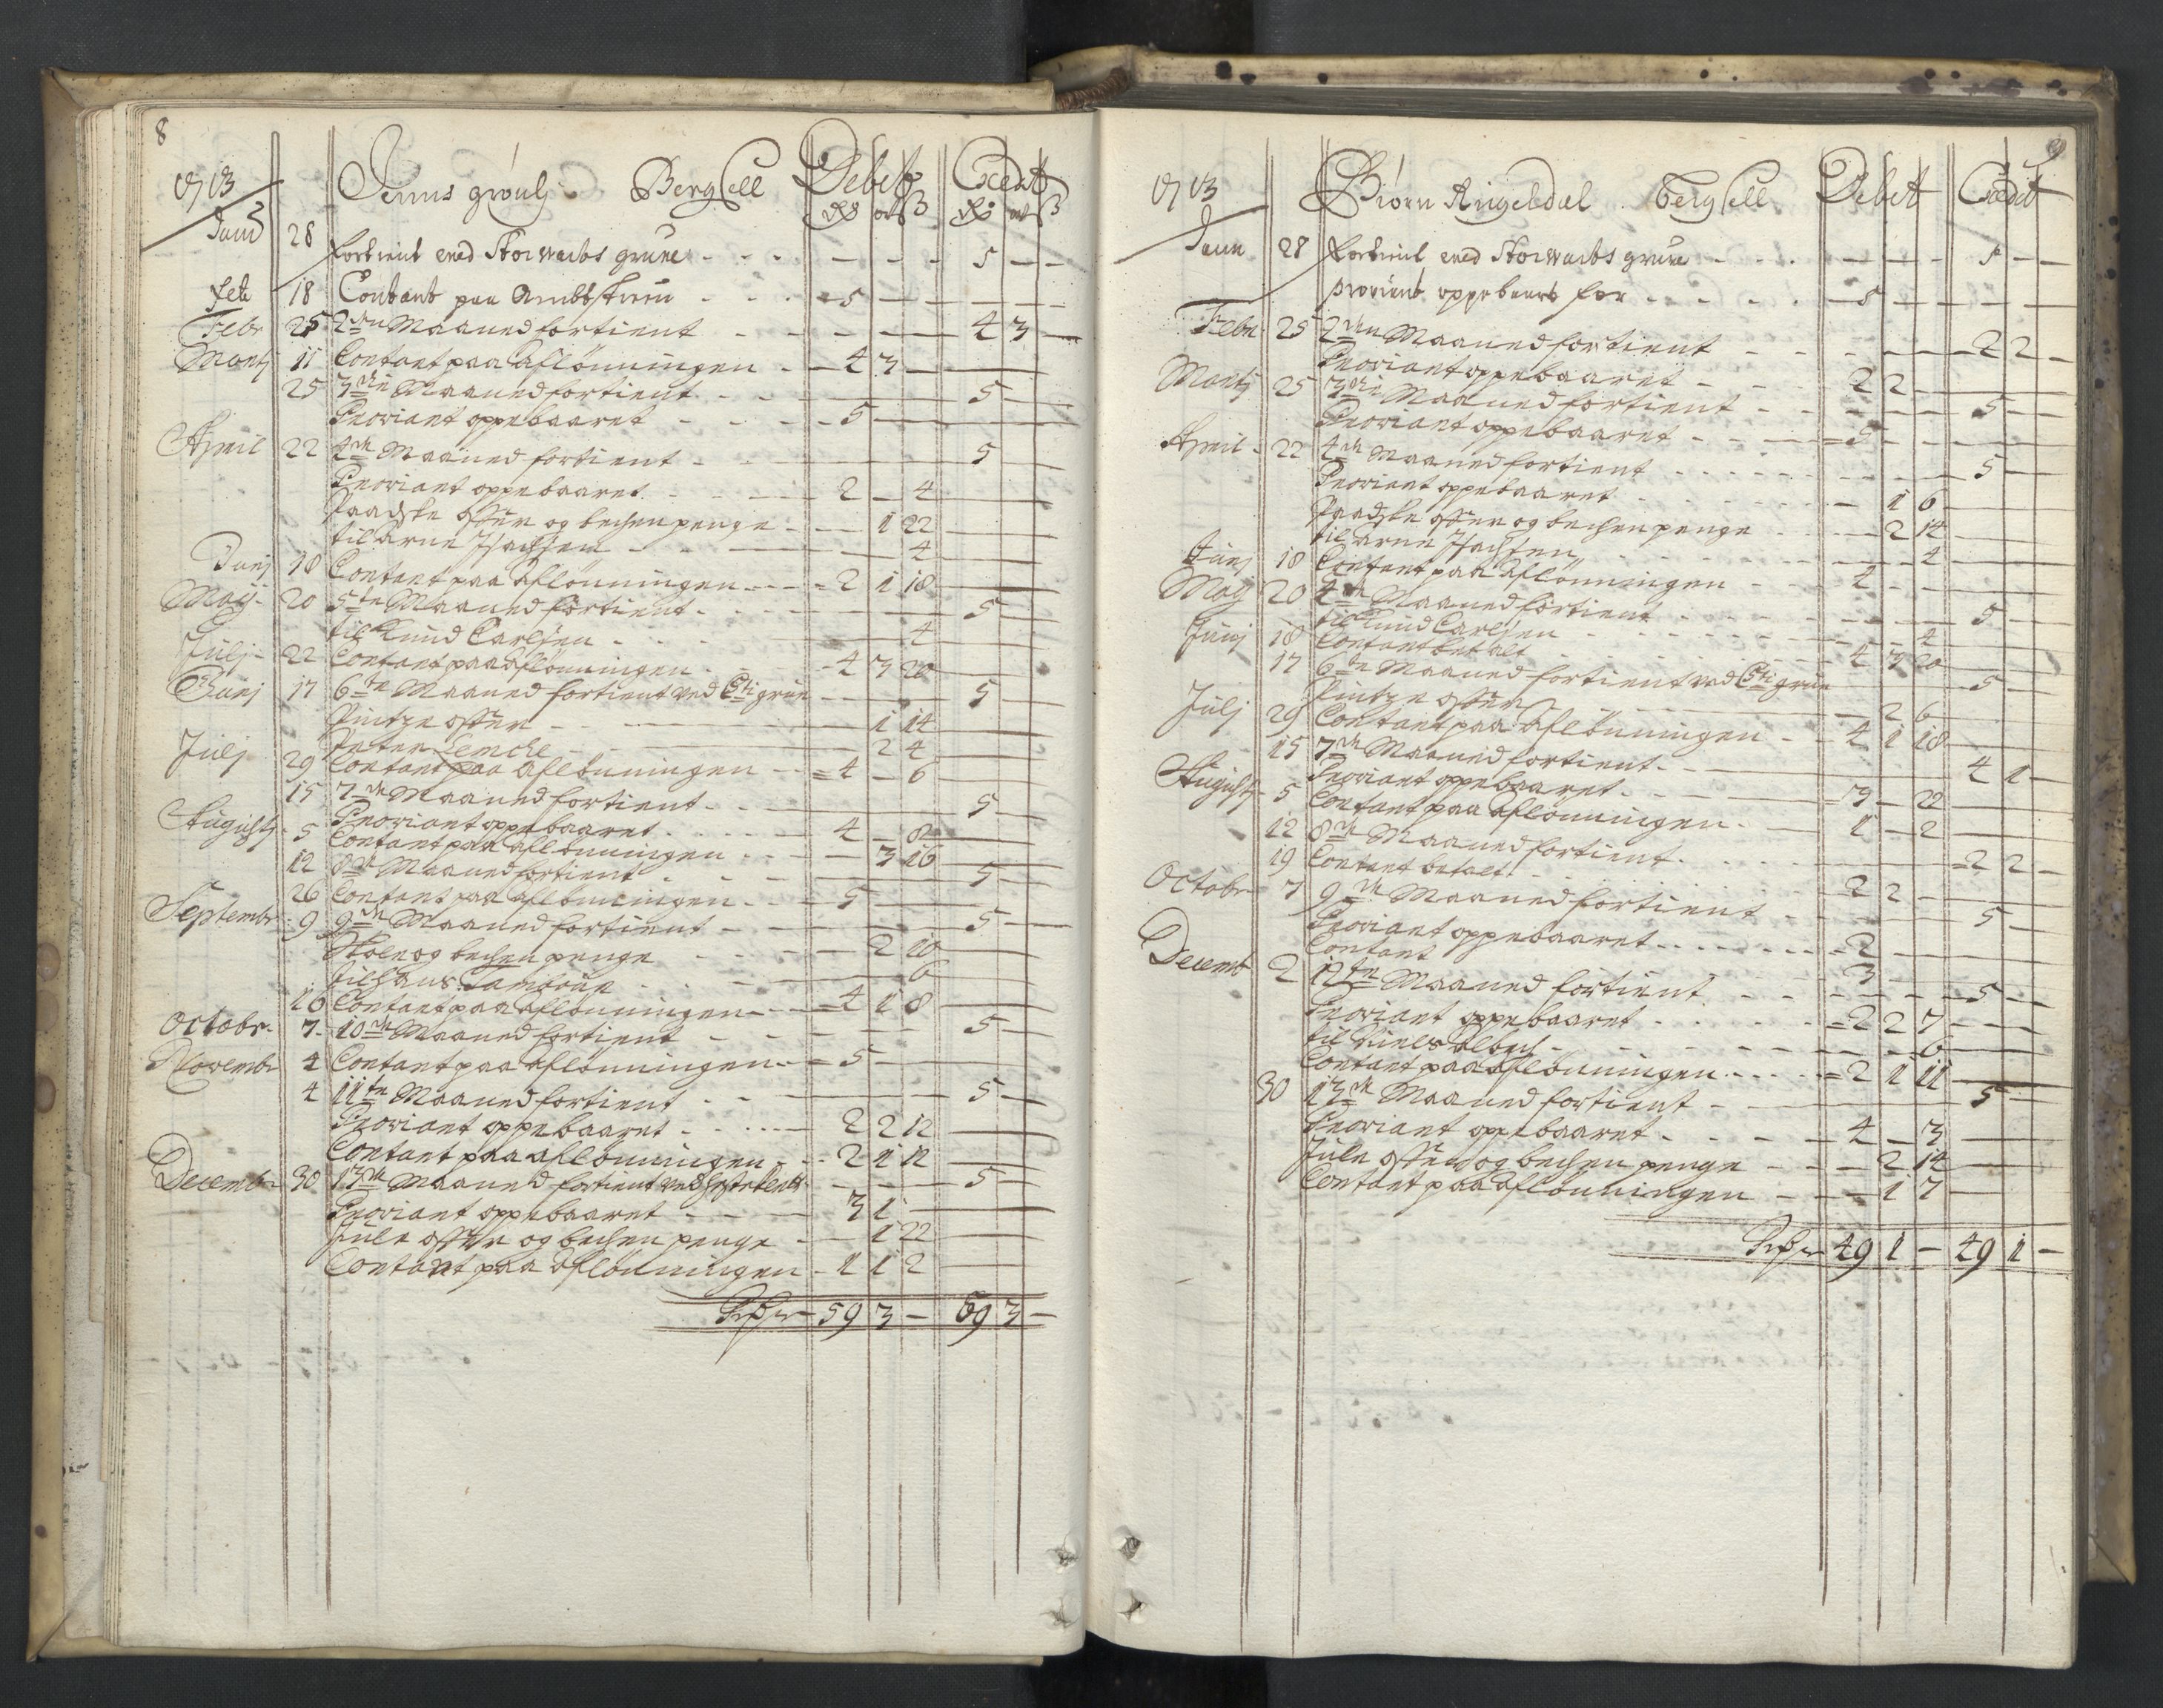 8
1713 Jenns grøulj Bergsell Debet Credit
Rd ort ß Rd ort ß
Janu 28 fortient ved Storwarts grube - - - 5 - -
Feb 18 Contant paa - 5 - -
Febr 25 2den Maaned fortient - - - 4 3 -
Martj 11 Contant paa Aflønningen - 4 3 -
25 3die Maaned fortient - - - 5 - -
Proviant oppebaaret - - 5 - -
April 22 4de Maaned fortient - - - 5 -
Proviant oppebaaret - - - 2 - 4
Paadske offer og bechen penge - - 1 22
til Arne Isachsen - - - 4
Junj 18 Contant paa Aflønningen - - - 2 1 18
Maij 20 5te Maaned fortient - - - 5 -
til Knud Carlsen - - - 4
Julj 22 Contant paa Aflønningen - - 4 3 20
Junj 17 6te Maaned fortient ved Cti grue - - - 5 -
Pintze offer - - 1 14
Peter Lemche - - 2 4
Julj 29 Contant paa Aflønningen - - 4 - 6
15 7de Maaned fortient - - - 5 -
Proviant oppebaaret - - - 4 - 8
Augustj 5 Contant paa Aflønningen - - - 3 16
12 8de Maaned fortient - - - 5 -
26 Contant paa Aflønningen - - - 5 -
Septembr 9 9de Maaned fortient - - - 5 -
Skole og bechen penge - - - 2 10
til Hans Tambour - - - 6
16 Contant paa Aflønningen - - 4 1 8
Octobr 7 10de Maaned fortient - - - 5 -
Novembr 4 Contant paa Aflønningen - - 5 -
4 11te Maaned fortient - - - 5 -
Proviant oppebaaret - - - 2 2 12
Contant paa Aflønningen - - 2 1 12
Decembr 30 13de Maaned fortient ved - - - 5 -
Proviant oppebaaret - - - 3 1 -
Jule offer og bechen penge - - 1 22
Contant paa Aflønningen - 1 1 2
59 3 - 59 3 -
9
1713 Biørn Ringeldal Bergsell Debet Credit
Janu 28 fortient ved Storwarts grube - - - 5 - -
proviant oppebaaret for - - - 5 - -
Febr 25 2den Maaned fortient - - - 2 2 -
Proviant oppebaaret - - - 2 2 -
Martj 25 3die Maaned fortient - - - 5 -
Proviant oppebaaret - - - 5 - -
April 22 4de Maaned fortient - - - 5 -
Proviant oppebaaret - - - 1 6
Paadske offer og bechen penge - - - 2 14
til Arne Isachsen - - - 4
Junj 18 Contant paa Aflønningen - - - 4 - -
Maij 20 4de Maaned fortient - - - 5 -
til Knud Carlsen - - - 4
Junj 18 Contant betalt - - - 4 3 20
17 6te Maaned fortient ved Cti grue - 5 -
Pintze offer - - 2 6
Julj 29 Contant paa Aflønningen - - 4 1 18
15 7de Maaned fortient - - - 4 1 -
Proviant oppebaaret - - 3 - 22
Augustj 5 Contant paa Aflønningen - - 1 - 2
12 8de Maaned fortient - - - 2 2 -
19 Contant betalt - - - 2 2 -
Octobr 7 9de Maaned fortient - - - 5 -
Proviant oppebaaret - - - 2 - -
Contant - 3 - -
Decemb 2 12te Maaned fortient - - - 5 -
Proviant oppebaaret - - - 2 2 7
til Niels Albech - - - 6
Contant paa Aflønningen - - - 2 1 11
30 13de Maaned fortient - - - 5 -
Proviant oppebaaret - - - 4 - 3
Jule offer og bechen penge - - - 2 14
Contant paa Aflønningen - - - 1 7
49 1 - 49 1 -